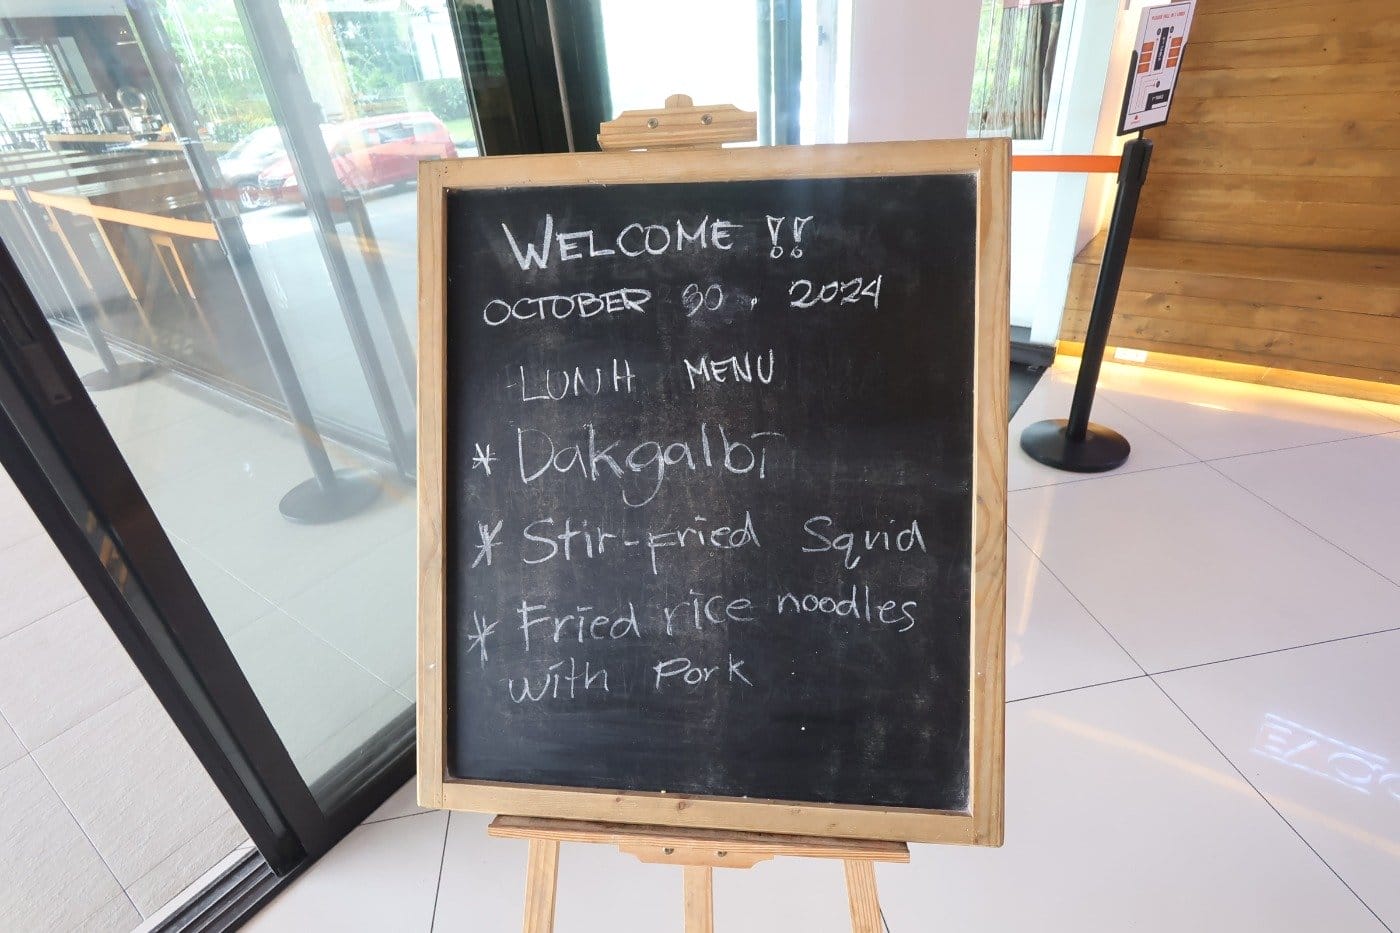 WELCOME !!
OCTOBER 30, 2024
LUNH MENU
* Dakgalbi
* Stir-fried Squid
* Fried rice noodles
with Pork